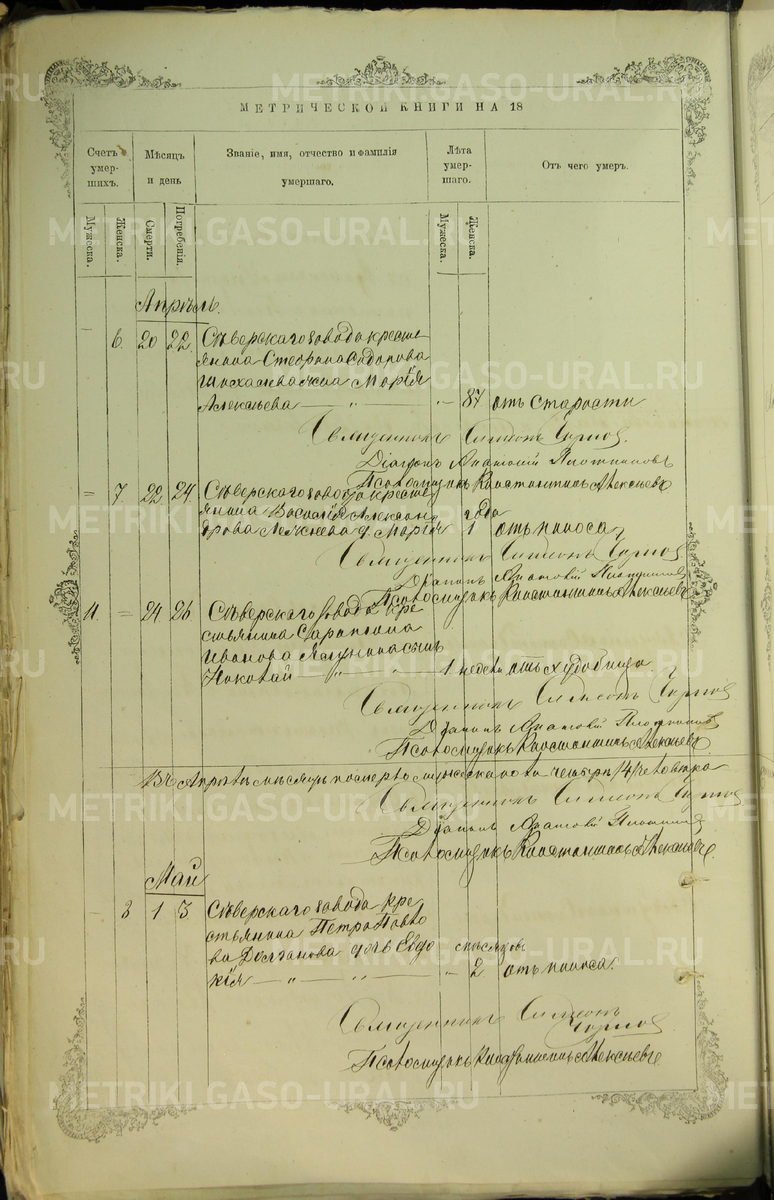 МЕТРИЧЕСКОЙ КНИГИ НА 18
Счетъ умер-шихъ.
Мѣсяцъ и день
Званіе, имя, отчество и фамилія умершаго.
Лѣта умер-шаго.
Отъ чего умеръ.
Мужеска. Женска. Смерти. Погребенія. Мужеска. Женска.
Апрѣль.
6. 20 22 Сѣверскаго завода кресть
янина Стефана
жена Марія
Алексѣева — „ „ — 87 отъ старости
Священникъ Симеонъ
Діаконъ Анатолій Плотниковъ
Псаломщикъ Константинъ Алексѣевъ
= 7. 22 24 Сѣверскаго завода кресть
янина Василія Алексан года
дрова д. Марія 1 отъ поноса
Священникъ Симеонъ
Діаконъ Анатолій Плотниковъ
Псаломщикъ Константинъ Алексѣевъ
11. = 24 26 Сѣверскаго завода кре
стьянина
Иванова сынъ
Николай — „ — „ — 1 недели отъ
Священникъ Симеонъ
Діаконъ Анатолій Плотниковъ
Псаломщикъ Константинъ Алексѣевъ
Въ Апрѣлѣ мѣсяцѣ умерло мужескаго четыре /4/ человѣка
Священникъ Симеонъ
Діаконъ Анатолій Плотниковъ
Псаломщикъ Константинъ Алексѣевъ
Май
- 8 1 3 Сѣверскаго завода кре
стьянина Петра Павло
ва Долганова дочь Евдо мѣсяцовъ
кія — „ — „ — „ 2 отъ поноса.
Священникъ Симеонъ
Псаломщикъ Константинъ Алексѣевъ
METRIKI.GASO-URAL.RU